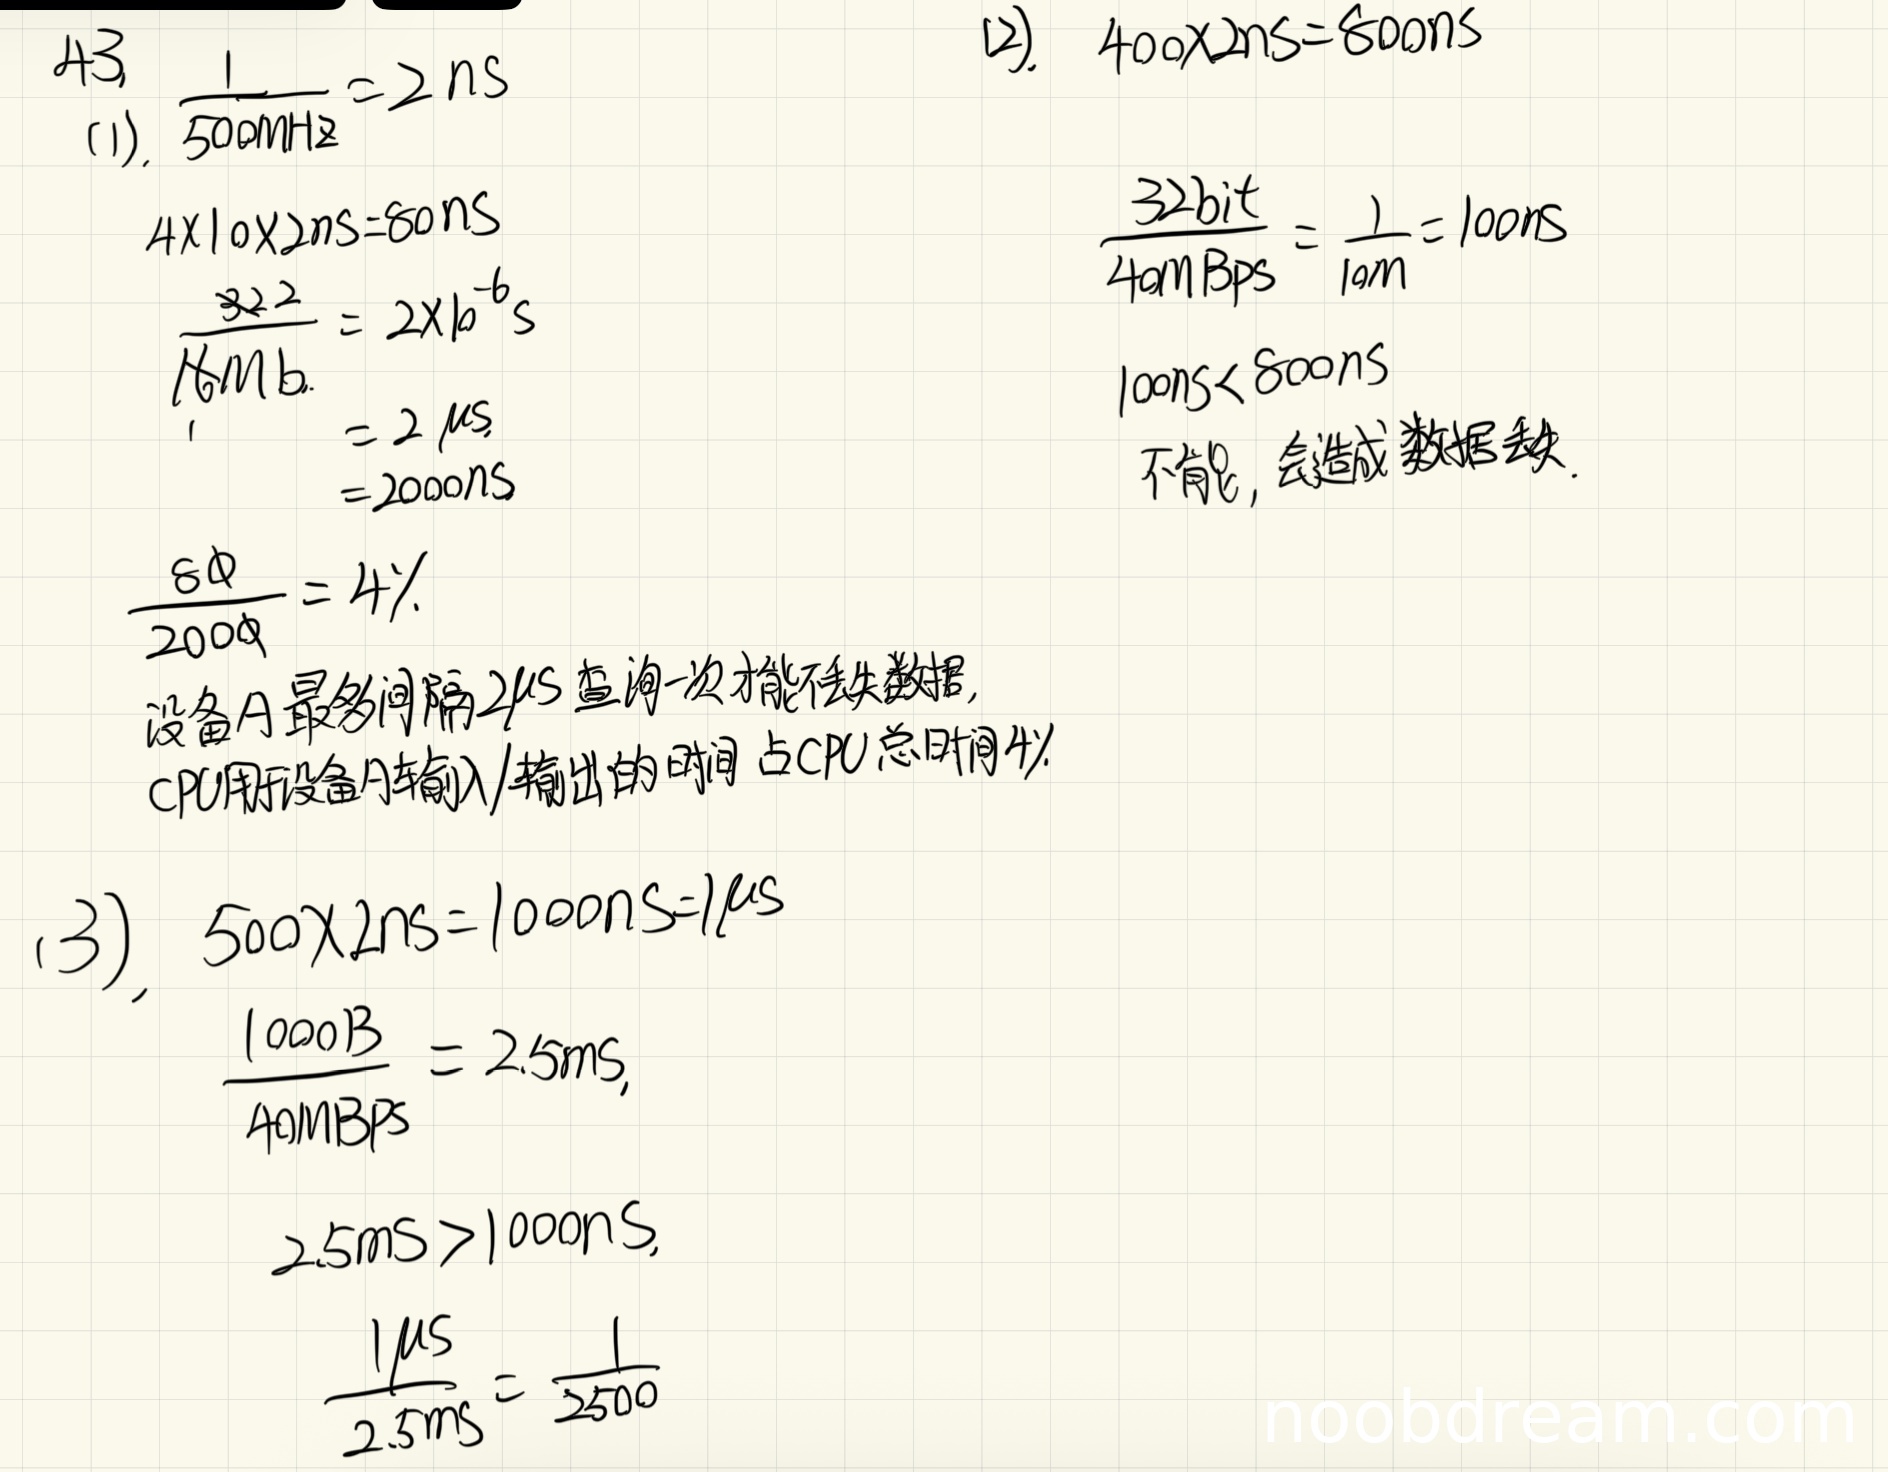 43.
(1). 1/500MHz = 2ns
4×10×2ns=80ns
32 2/16Mb. 1 = 2×10⁻⁶s
= 2μs.
=2000ns
80/2000 = 4%.
设备A最多间隔2μs查询一次才能不丢失数据,
CPU用于设备A输入/输出的时间占CPU总时间4%.
(2). 400×2ns=800ns
32bit/40MBps = 1/10M = 100ns
100ns<800ns
不能,会造成数据丢失.
(3), 500×2ns=1000ns=1μs
1000B/40MBPS = 2.5ms,
2.5ms>1000ns.
1μs/2.5ms = 1/2500
noobdream.com